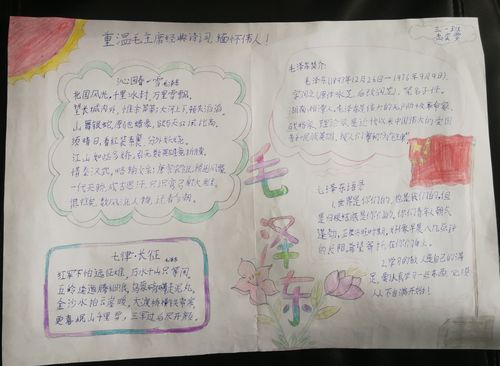 重温毛主席经典诗词,缅怀伟人!
三一班
沁园春·雪 毛泽东
北国风光,千里冰封,万里雪飘,
望长城内外,惟余莽莽;大河上下,顿失滔滔。
山舞银蛇,原驰蜡象,欲与天公试比高。
须晴日,看红装素裹,分外妖娆。
江山如此多娇,引无数英雄竞折腰。
惜秦汉武,略输文采;唐宗宋祖,稍逊风骚。
一代天骄,成吉思汗,只识弯弓射大雕。
俱往矣,数风流人物,还看今朝。
七律·长征 毛泽东
红军不怕远征难,万水千山只等闲。
五岭逶迤腾细浪,乌蒙磅礴走泥丸。
金沙水拍云崖暖,大渡桥横铁索寒。
更喜岷山千里雪,三军过后尽开颜。
毛泽东
毛泽东简介:
毛泽东(1893年12月26日—1976年9月9日),
字润之(原作咏芝,后改润芝),笔名子任。
湖南湘潭人。毛泽东是伟大的无产阶级革命家、
战略家、理论家,是近代以来中国伟大的爱国
者和民族英雄,
毛泽东语录
1.世界是你们的,也是我们的,但
是归根结底是你们的。你们青年人朝气
蓬勃,正在兴旺时期,好像早晨八九点钟
的太阳,希望寄托在你们身上。
2.学习的敌人是自己的满
足,要认真学习一些东西,必须
从不自满开始!